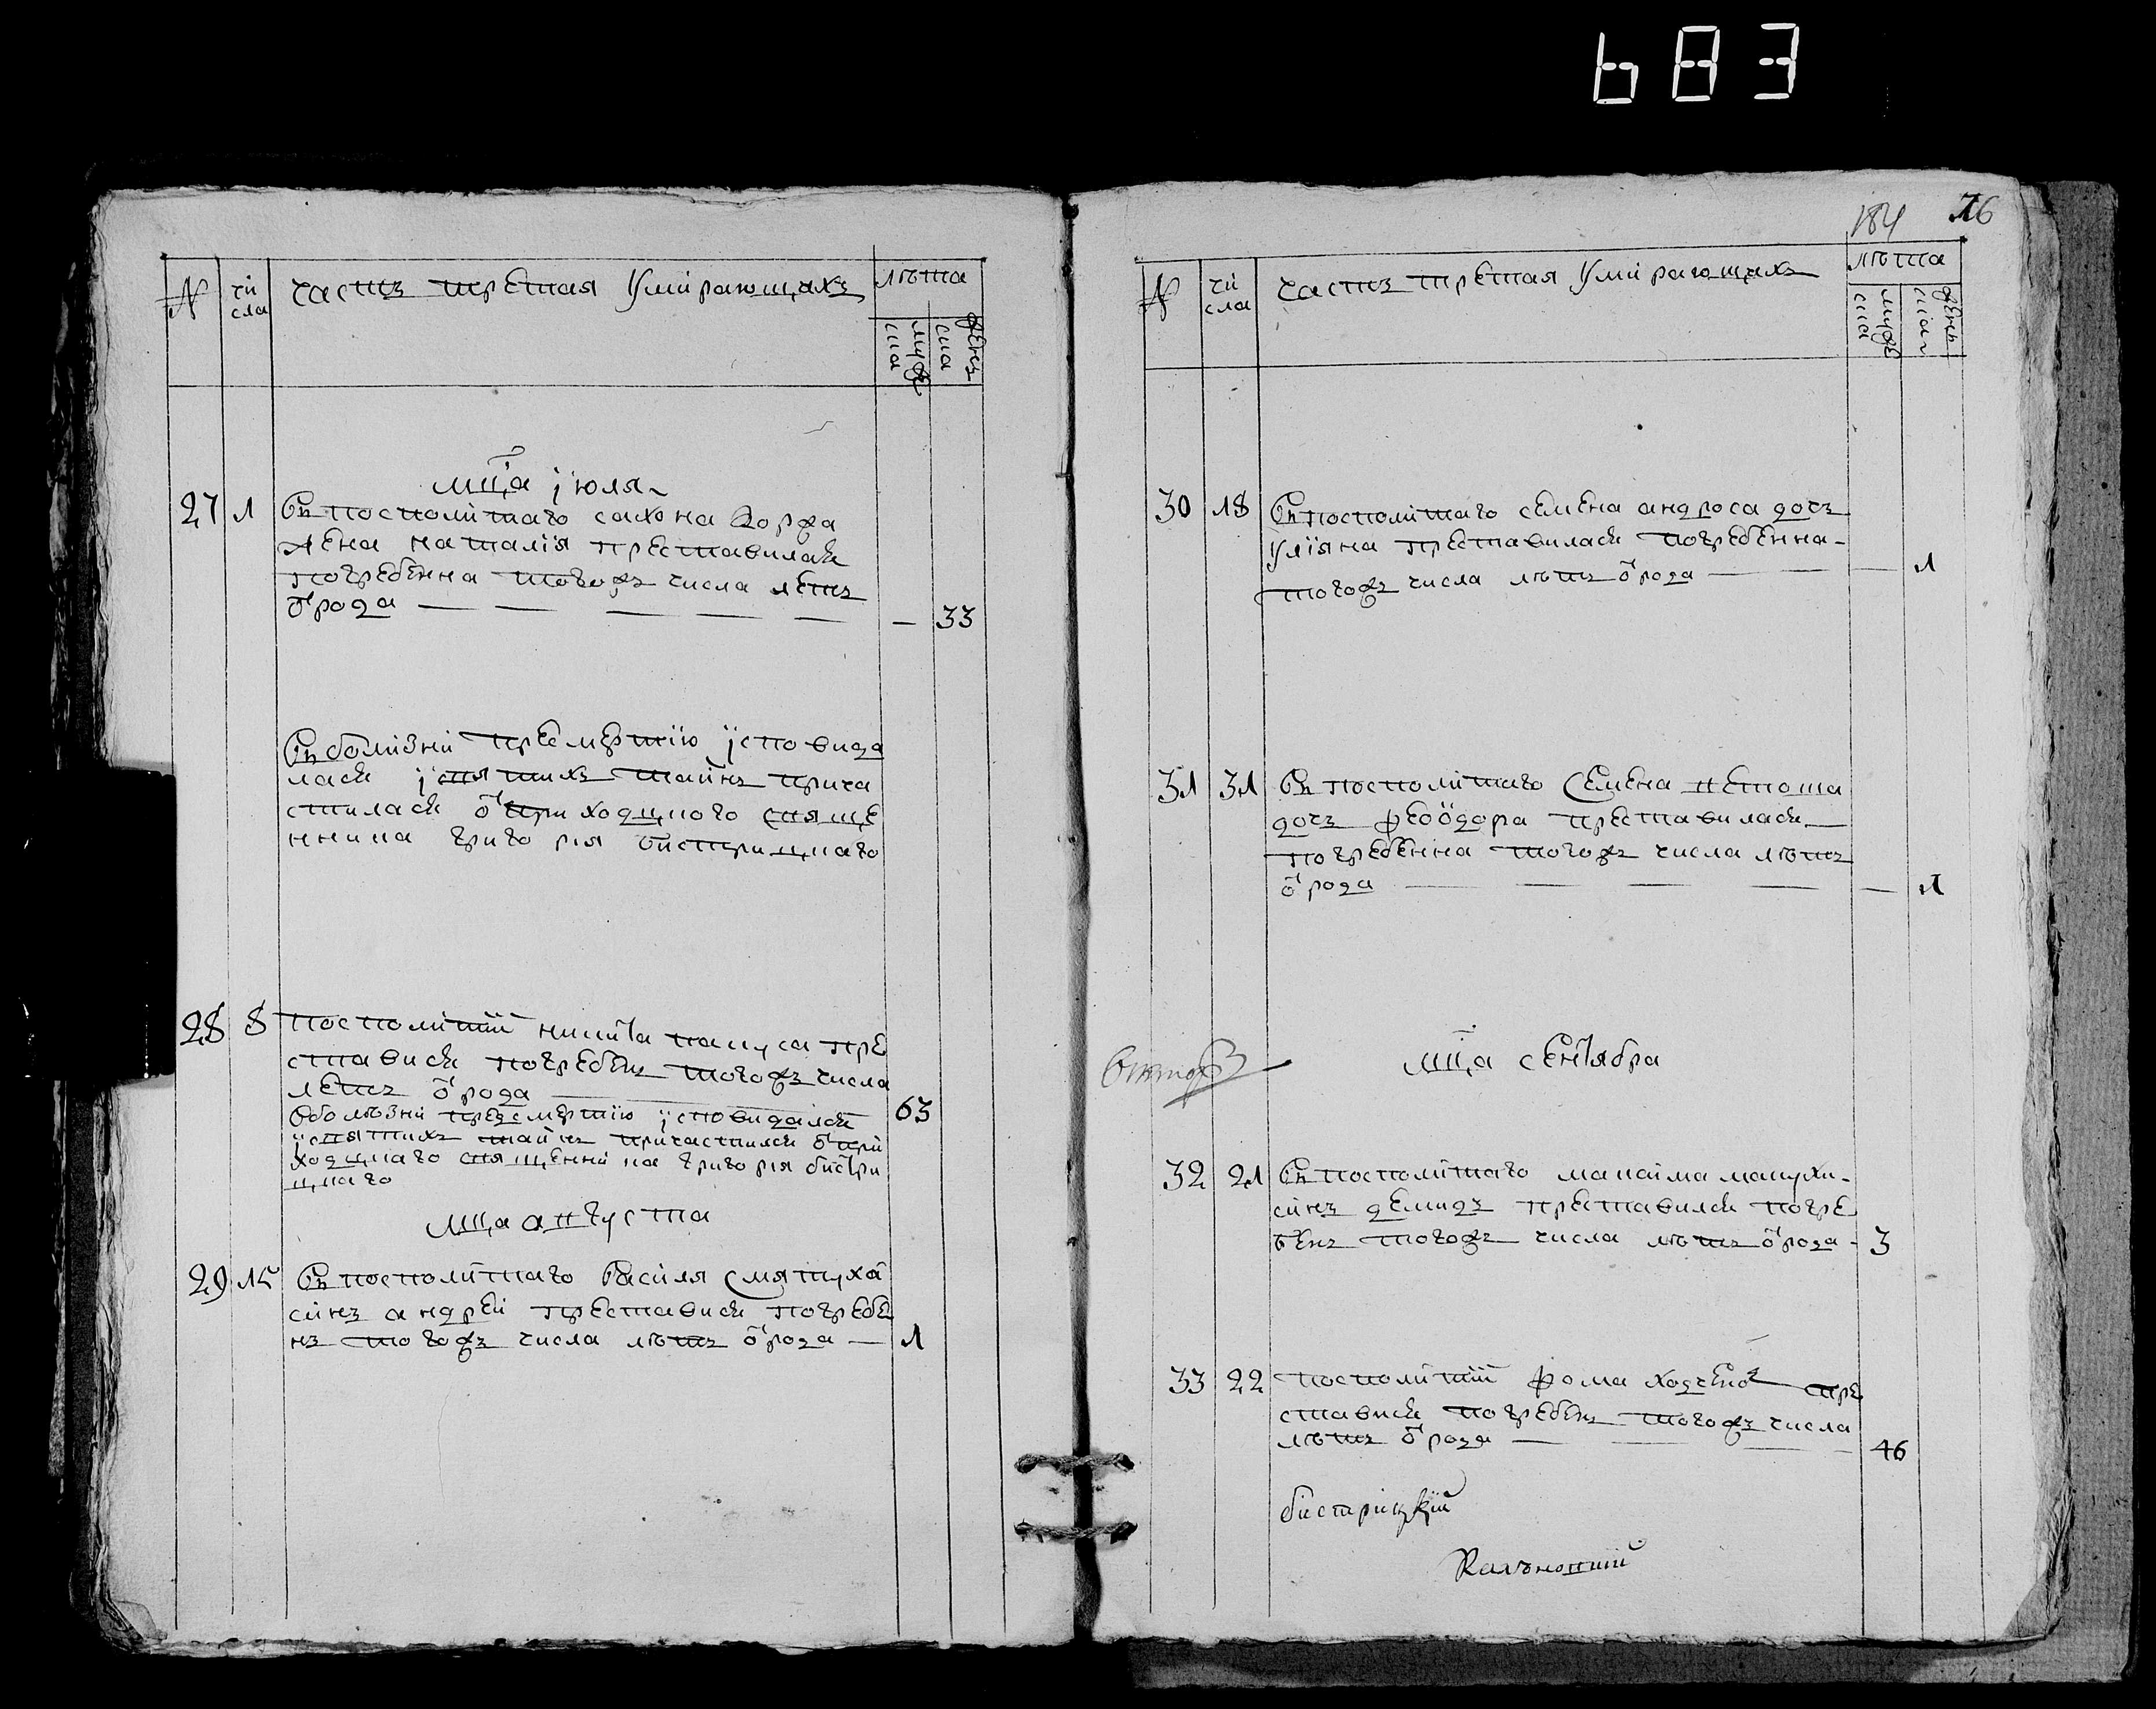 683
№ чи сла часть третая Умирающихъ лѣта
мужеска женска
мц҃а іюля
27 1 В посполитаго сахона Коржа
жена наталїя преставилась
погребенна тогожъ числа летъ
ѿ рода — — — — — — 33
В болизни пресмертїю їсповида
лася ї святихъ таинъ прича
стилася ѿ приходцкого свяще
нника григорїя бистрицкаго
28 8 посполитїй никита пацука пре
ставися погребенъ тогожъ числа
летъ ѿ рода — 63
Вболѣзни предсмертїю їсповидался
ї святихъ таинъ причастился ѿ при
ходцкаго священника григорїя бистри
цкаго
мц҃а августа
29 15 В посполитаго Василя Смятуха
синъ андрей преставися погребе
нъ тогожъ числа лѣтъ ѿ рода — 1
184 76
№ чи сла часть третая Умирающихъ лѣта
мужеска женска
30 18 В посполитаго семена андроса дочъ
Улїяна преставилася погребенна
тогожъ числа лѣтъ ѿ рода — — 1
31 31 В посполитаго Семена
дочъ феѻдора преставилася
погребенна тогожъ числа лѣтъ
ѿ рода — — — — — 1
мц҃а сентября
32 21 В посполитаго максима
синъ демидъ преставился погре
бенъ тогожъ числа лѣтъ ѿ рода - 3
33 22 посполитїй фома ходченко пре
ставися погребенъ тогожъ числа
лѣтъ ѿ рода — — — 46
бистрицкїй